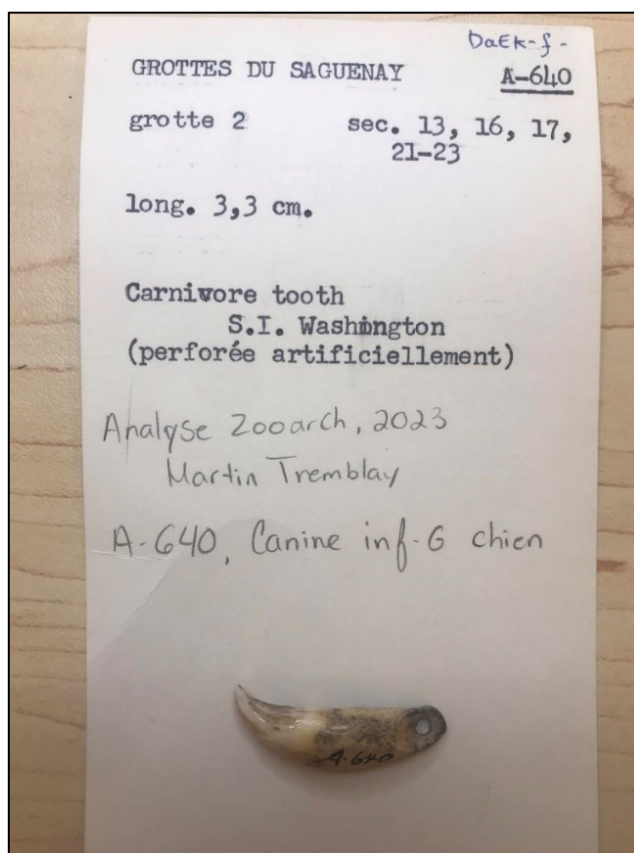 DaEk-f-
GROTTES DU SAGUENAY A-640
grotte 2 sec. 13, 16, 17,
21-23
long. 3,3 cm.
Carnivore tooth
S.I. Washington
(perforée artificiellement)
Analyse Zooarch, 2023
Martin Tremblay
A-640, Canine inf-G chien
A-640